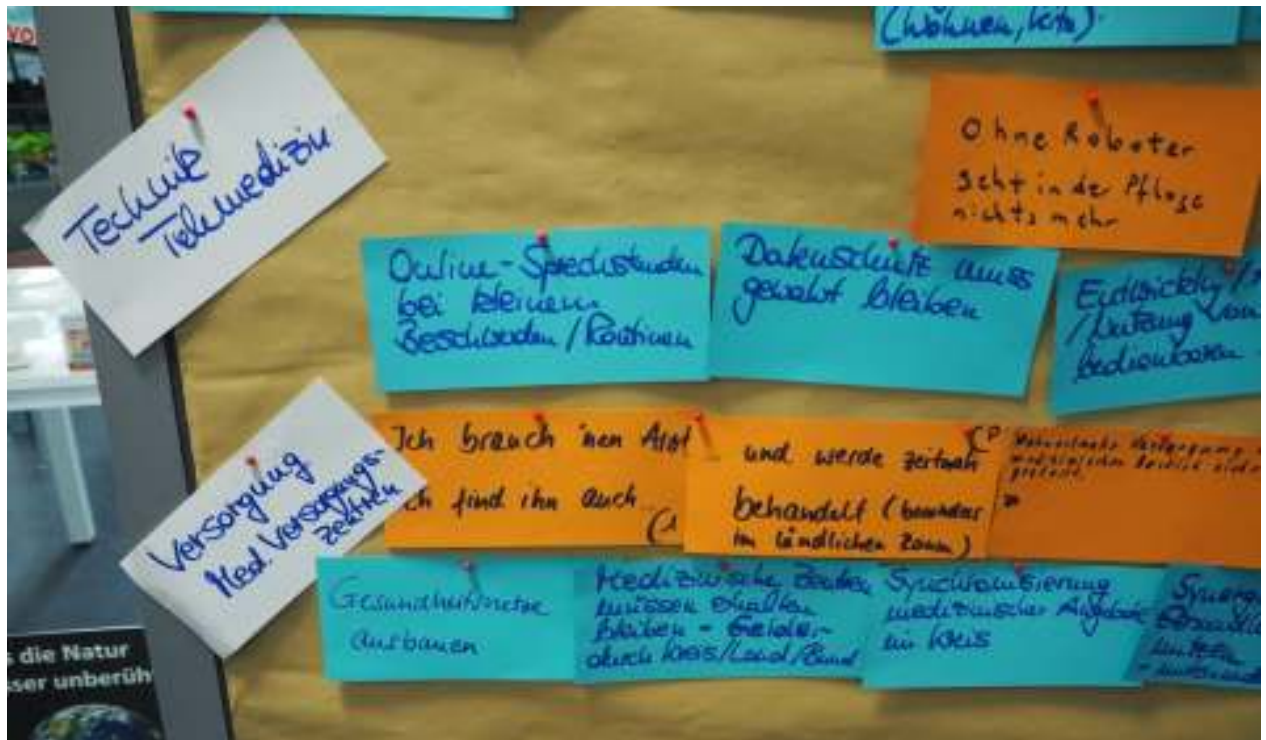 vo
(Wohnen, Kita).
Technik
Telemedizin
Ohne Roboter
geht in der Pflege
nichts mehr
Online-Sprechstunden
bei kleinen
Beschwerden / Routinen
Datenschutz muss
gewahrt bleiben
/ Nutzung von
bedienbaren
Versorgung
Med. Versorgungs-
zentren
Ich brauch 'nen Arzt
ich find ihn auch
(1
und werde zeitnah
behandelt (besonders
im ländlichen Raum)
Gesundheitsnetze
ausbauen
Medizinische Zentren
müssen erhalten
bleiben - Gelder
durch Kreis/Land/Bund
Synchronisierung
medizinischer Angebote
im Kreis
die Natur
sser unberüh